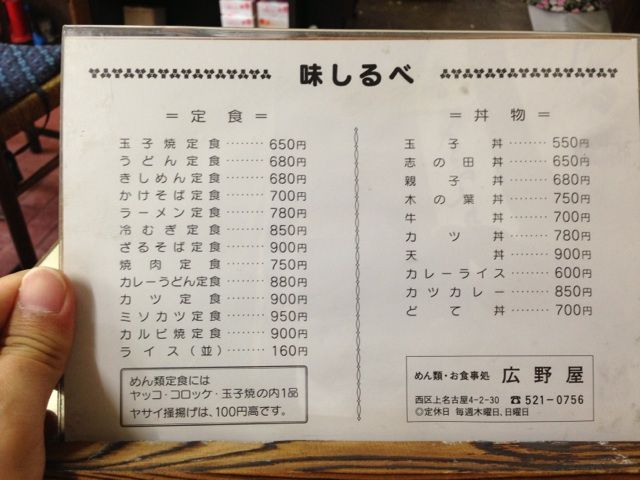 味しるべ
＝定食＝
玉子焼定食 ········ 650円
うどん定食 ········ 680円
きしめん定食 ········ 680円
かけそば定食 ········ 700円
ラーメン定食 ········ 780円
冷むぎ定食 ········ 850円
ざるそば定食 ········ 900円
焼肉定食 ········ 750円
カレーうどん定食 ········ 880円
カツ定食 ········ 900円
ミソカツ定食 ········ 950円
カルビ焼定食 ········ 900円
ライス（並） ········ 160円
めん類定食には
ヤッコ・コロッケ・玉子焼の内1品
ヤサイ掻揚げは、100円高です。
＝丼物＝
玉子丼 ········ 550円
志の田丼 ········ 650円
親子丼 ········ 680円
木の葉丼 ········ 750円
牛丼 ········ 700円
カツ丼 ········ 780円
天丼 ········ 900円
カレーライス ········ 600円
カツカレー ········ 850円
どて丼 ········ 700円
めん類・お食事処 広野屋
西区上名古屋4-2-30 ☎521-0756
◎定休日 毎週木曜日、日曜日